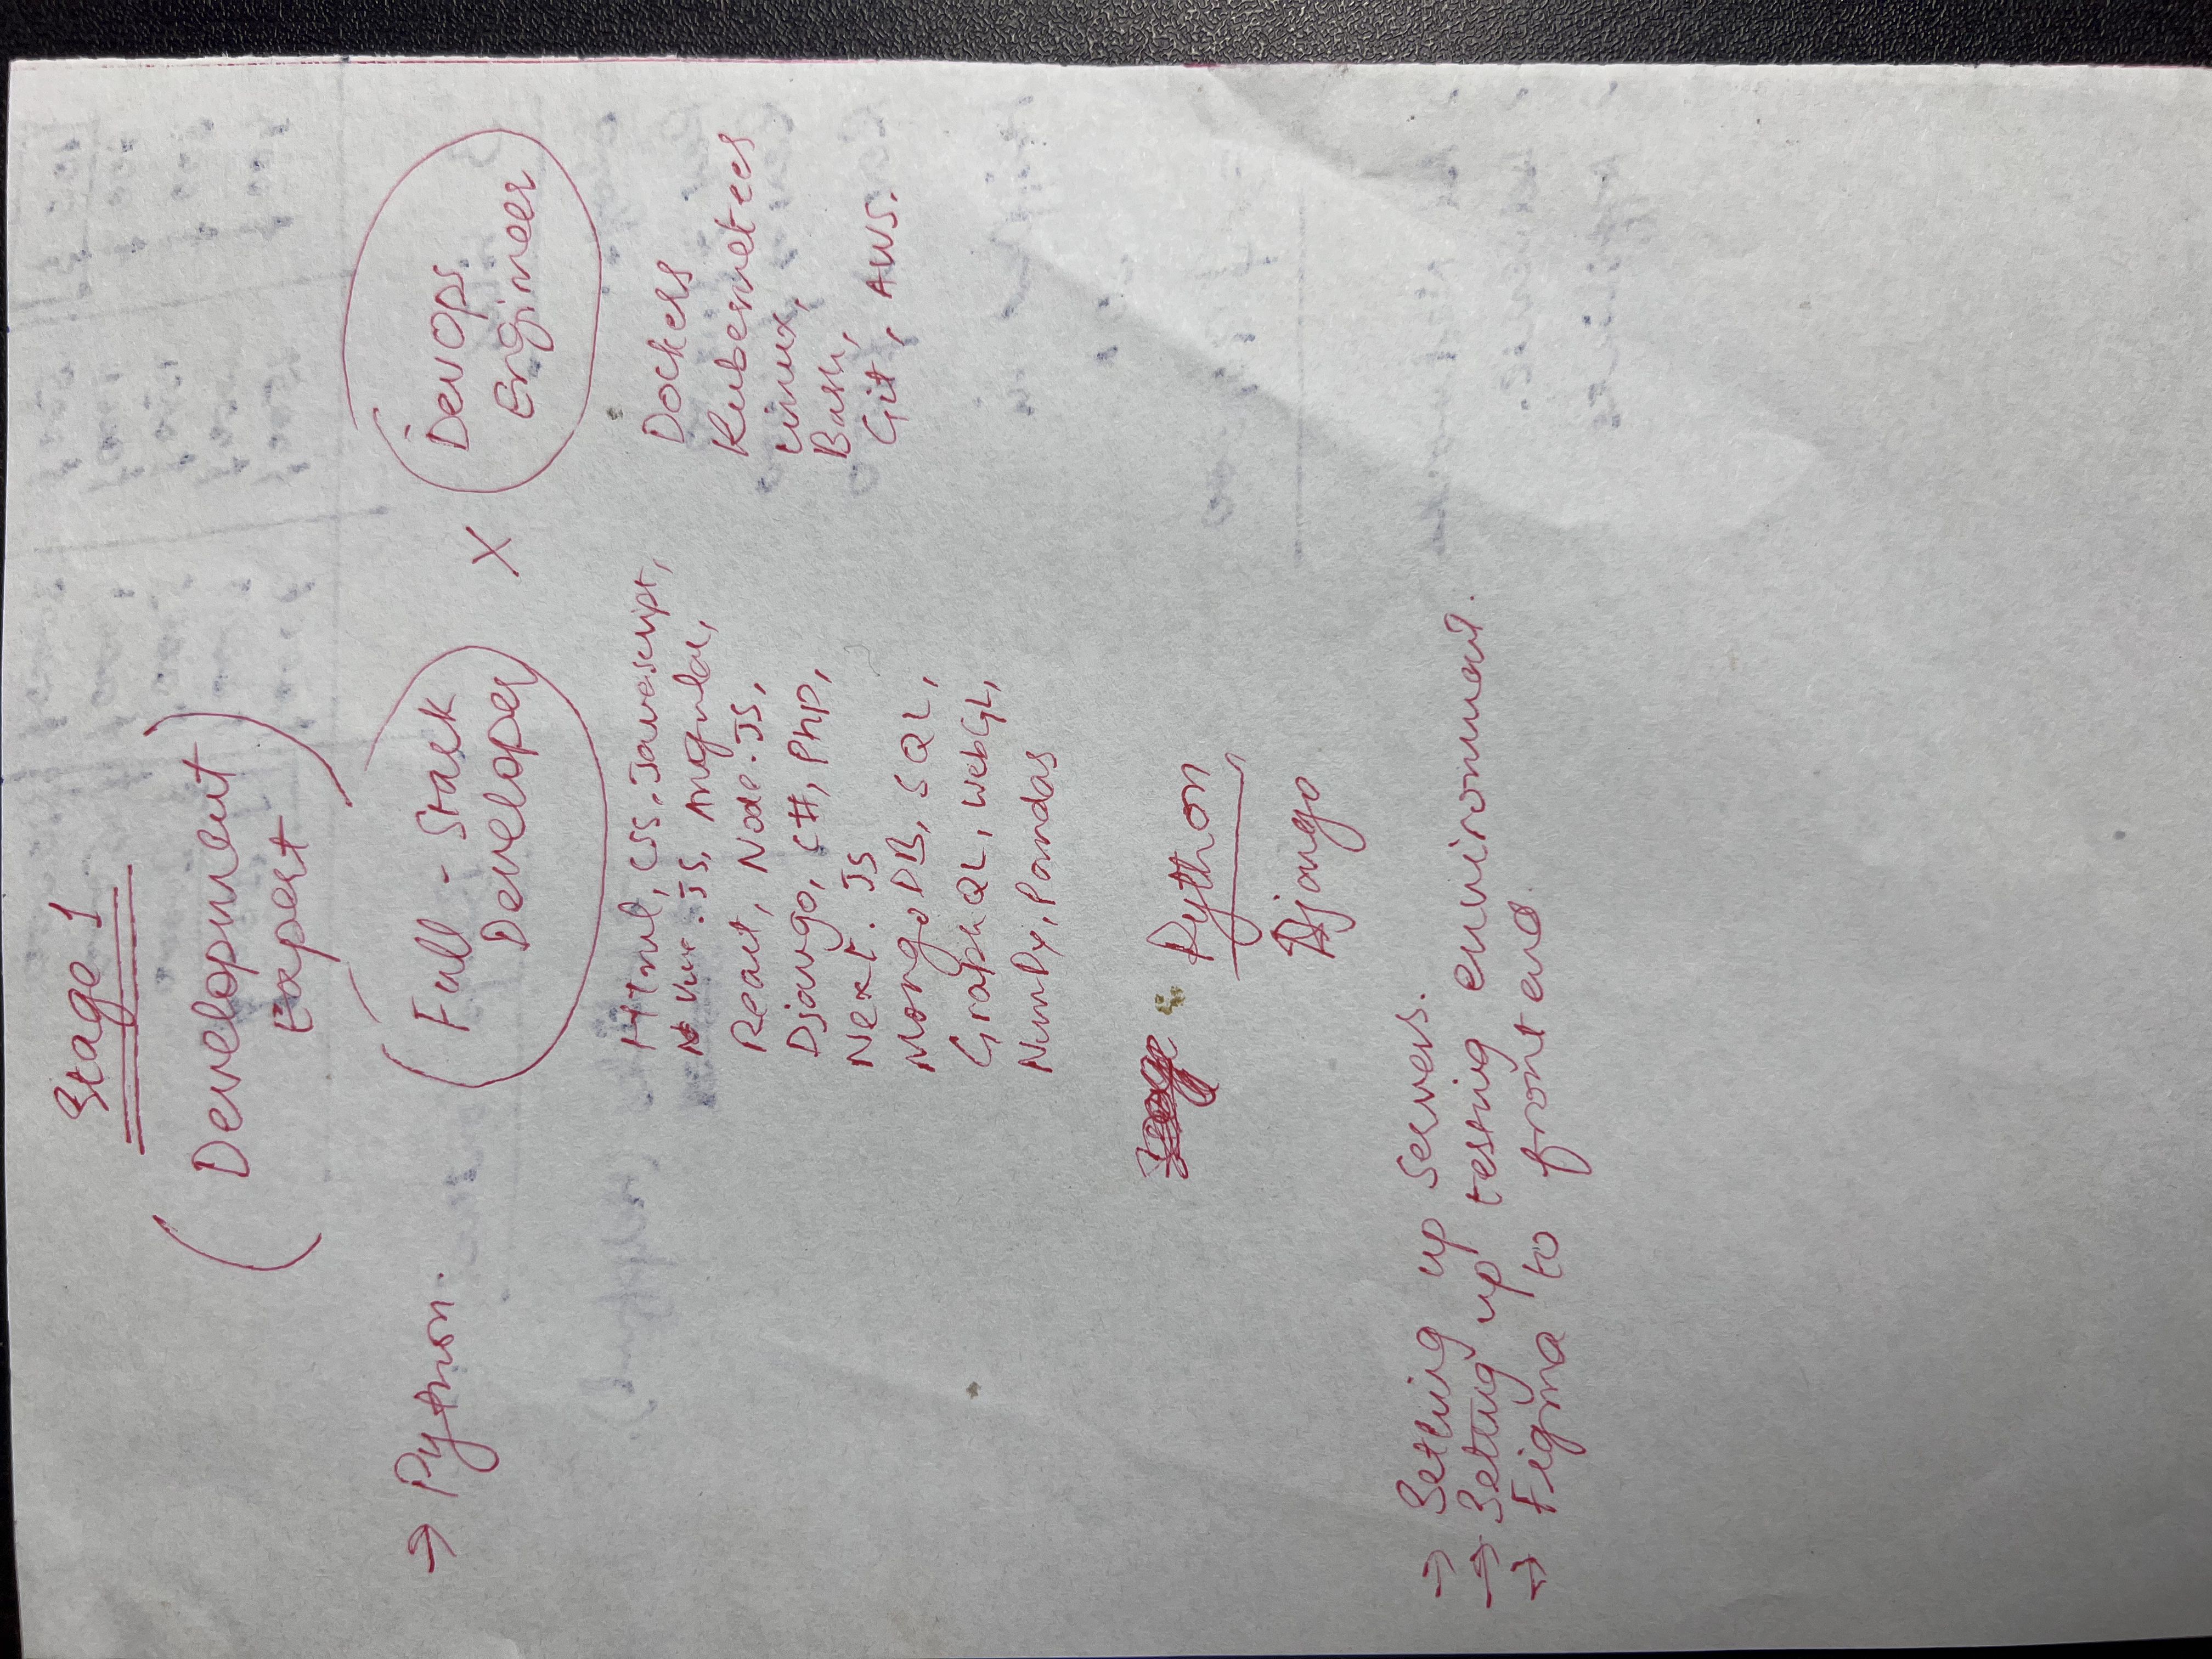 Stage 1
(Development
Expert)
→ Python.
Full-Stack
Developer
X
Devops
Engineer
Html, CSS, Javascript,
Vue.JS, Angular,
React, Node.JS,
Django, C#, PHP,
Next.JS
MongoDB, SQL,
GraphQL, WebGL,
NumPy, Pandas
Dockers
Kubernetees
Linux,
Bash,
Git, AWS.
Python
Django
→ Setting up servers.
→ Setting up testing environment.
→ Figma to frontend